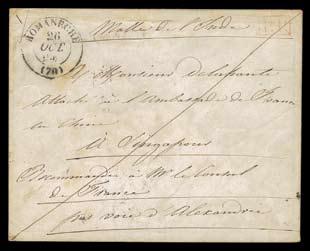 ROMANÈCHE
26
OCT
(70)
Malle de l'Inde
A Monsieur Delaplante
Attaché à l'Ambassade de France
en Chine
A Singapour
Recommandée à Mr le Consul
de France
par voie d'Alexandrie